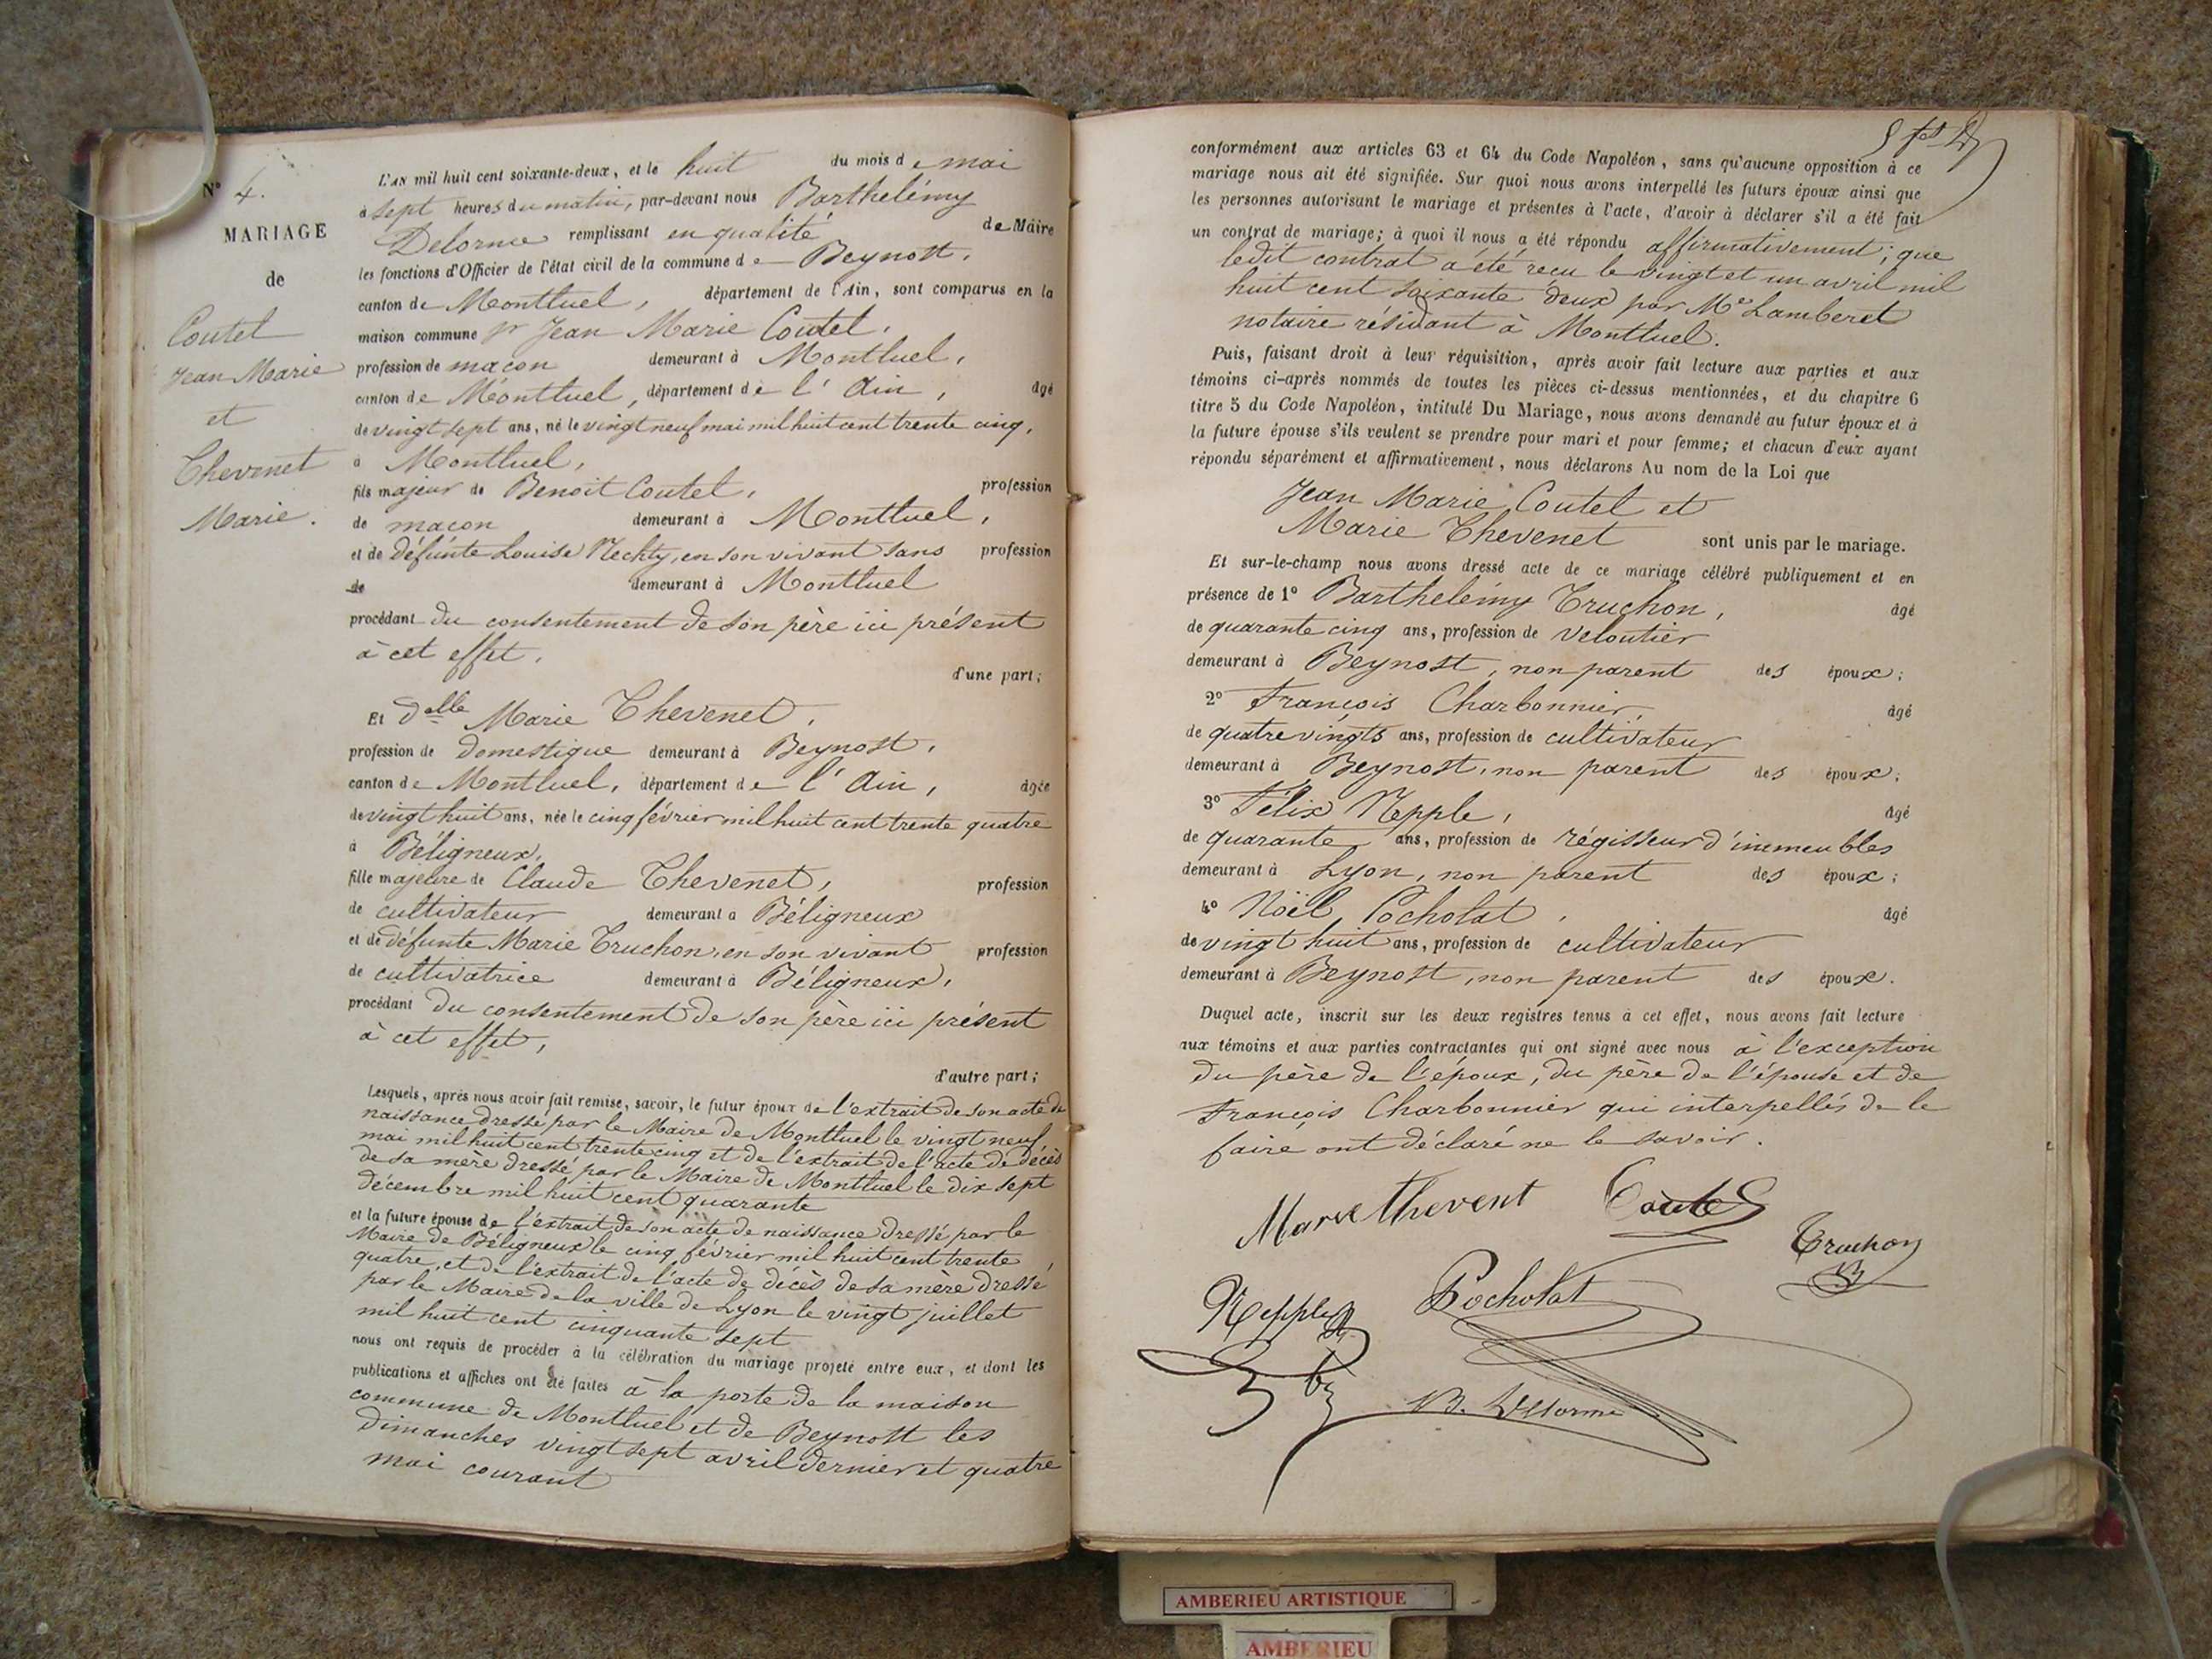 N° 4.
MARIAGE
de
Coutel
Jean Marie
et
Thevenet
Marie.
L'AN mil huit cent soixante-deux, et le huit du mois de mai
à sept heures du matin, par-devant nous Barthelémy
Delorme remplissant en qualité de Maire
les fonctions d'Officier de l'état civil de la commune de Beynost,
canton de Montluel, département de l'Ain, sont comparus en la
maison commune Sr Jean Marie Coutel,
profession de maçon demeurant à Montluel,
canton de Montluel, département de l'Ain, âgé
de vingt sept ans, né le vingt neuf mai mil huit cent trente cinq,
à Montluel,
fils majeur de Benoit Coutel, profession
de maçon demeurant à Montluel,
et de défunte Louise Nechty, en son vivant sans profession
de demeurant à Montluel
procédant du consentement de son père ici présent
à cet effet,
d'une part;
Et Delle Marie Thevenet,
profession de domestique demeurant à Beynost,
canton de Montluel, département de l'Ain, âgée
de vingt huit ans, née le cinq février mil huit cent trente quatre
à Béligneux,
fille majeure de Claude Thevenet, profession
de cultivateur demeurant à Béligneux
et de défunte Marie Truchon, en son vivant profession
de cultivatrice demeurant à Béligneux,
procédant du consentement de son père ici présent
à cet effet,
d'autre part;
Lesquels, après nous avoir fait remise, savoir, le futur époux de l'extrait de son acte de
naissance dressé par le Maire de Montluel le vingt neuf
mai mil huit cent trente cinq et de l'extrait de l'acte de décès
de sa mère dressé par le Maire de Montluel le dix sept
décembre mil huit cent quarante
et la future épouse de l'extrait de son acte de naissance dressé par le
Maire de Béligneux le cinq février mil huit cent trente
quatre, et de l'extrait de l'acte de décès de sa mère dressé
par le Maire de la ville de Lyon le vingt juillet
mil huit cent cinquante sept
nous ont requis de procéder à la célébration du mariage projeté entre eux, et dont les
publications et affiches ont été faites à la porte de la maison
commune de Montluel et de Beynost les
dimanches vingt sept avril dernier et quatre
mai courant
conformément aux articles 63 et 64 du Code Napoléon, sans qu'aucune opposition à ce
mariage nous ait été signifiée. Sur quoi nous avons interpellé les futurs époux ainsi que
les personnes autorisant le mariage et présentes à l'acte, d'avoir à déclarer s'il a été fait
un contrat de mariage; à quoi il nous a été répondu affirmativement; que
ledit contrat a été reçu le vingt et un avril mil
huit cent soixante deux par Me Lamberet
notaire résidant à Montluel.
Puis, faisant droit à leur réquisition, après avoir fait lecture aux parties et aux
témoins ci-après nommés de toutes les pièces ci-dessus mentionnées, et du chapitre 6
titre 5 du Code Napoléon, intitulé Du Mariage, nous avons demandé au futur époux et à
la future épouse s'ils veulent se prendre pour mari et pour femme; et chacun d'eux ayant
répondu séparément et affirmativement, nous déclarons Au nom de la Loi que
Jean Marie Coutel et
Marie Thevenet sont unis par le mariage.
Et sur-le-champ nous avons dressé acte de ce mariage célébré publiquement et en
présence de 1° Barthelémy Truchon, âgé
de quarante cinq ans, profession de veloutier
demeurant à Beynost, non parent des époux;
2° François Charbonnier, âgé
de quatre vingts ans, profession de cultivateur
demeurant à Beynost, non parent des époux;
3° Félix Nepple, âgé
de quarante ans, profession de régisseur d'immeubles
demeurant à Lyon, non parent des époux;
4° Noël Pocholat, âgé
de vingt huit ans, profession de cultivateur
demeurant à Beynost, non parent des époux.
Duquel acte, inscrit sur les deux registres tenus à cet effet, nous avons fait lecture
aux témoins et aux parties contractantes qui ont signé avec nous à l'exception
du père de l'époux, du père de l'épouse et de
François Charbonnier qui interpellés de le
faire ont déclaré ne le savoir.
Marie thevent Coutel
Truchon
Nepple Pocholat
B. Delorme
AMBERIEU ARTISTIQUE
AMBERIEU